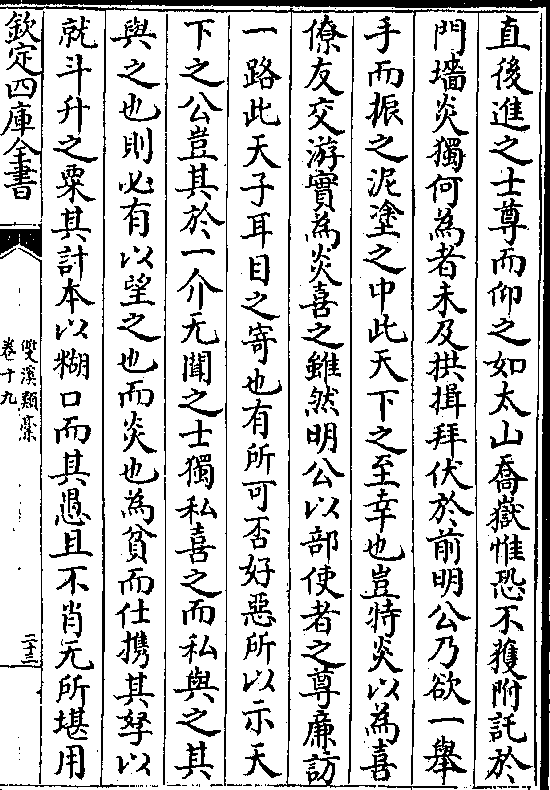 直後進之士尊而仰之如太山喬嶽惟恐不獲附託於
門墻炎獨何為者未及拱揖拜伏於前明公乃欲一舉
手而振之泥塗之中此天下之至幸也豈特炎以為喜
僚友交游實為炎喜之雖然明公以部使者之尊廉訪
一路此天子耳目之寄也有所可否好惡所以示天
下之公豈其於一介无聞之士獨私喜之而私與之其
與之也則必有以望之也而炎也為貧而仕携其孥以
就斗升之粟其計本以糊口而其愚且不肖无所堪用
欽定四庫全書
雙溪類稾
卷十九
二十三